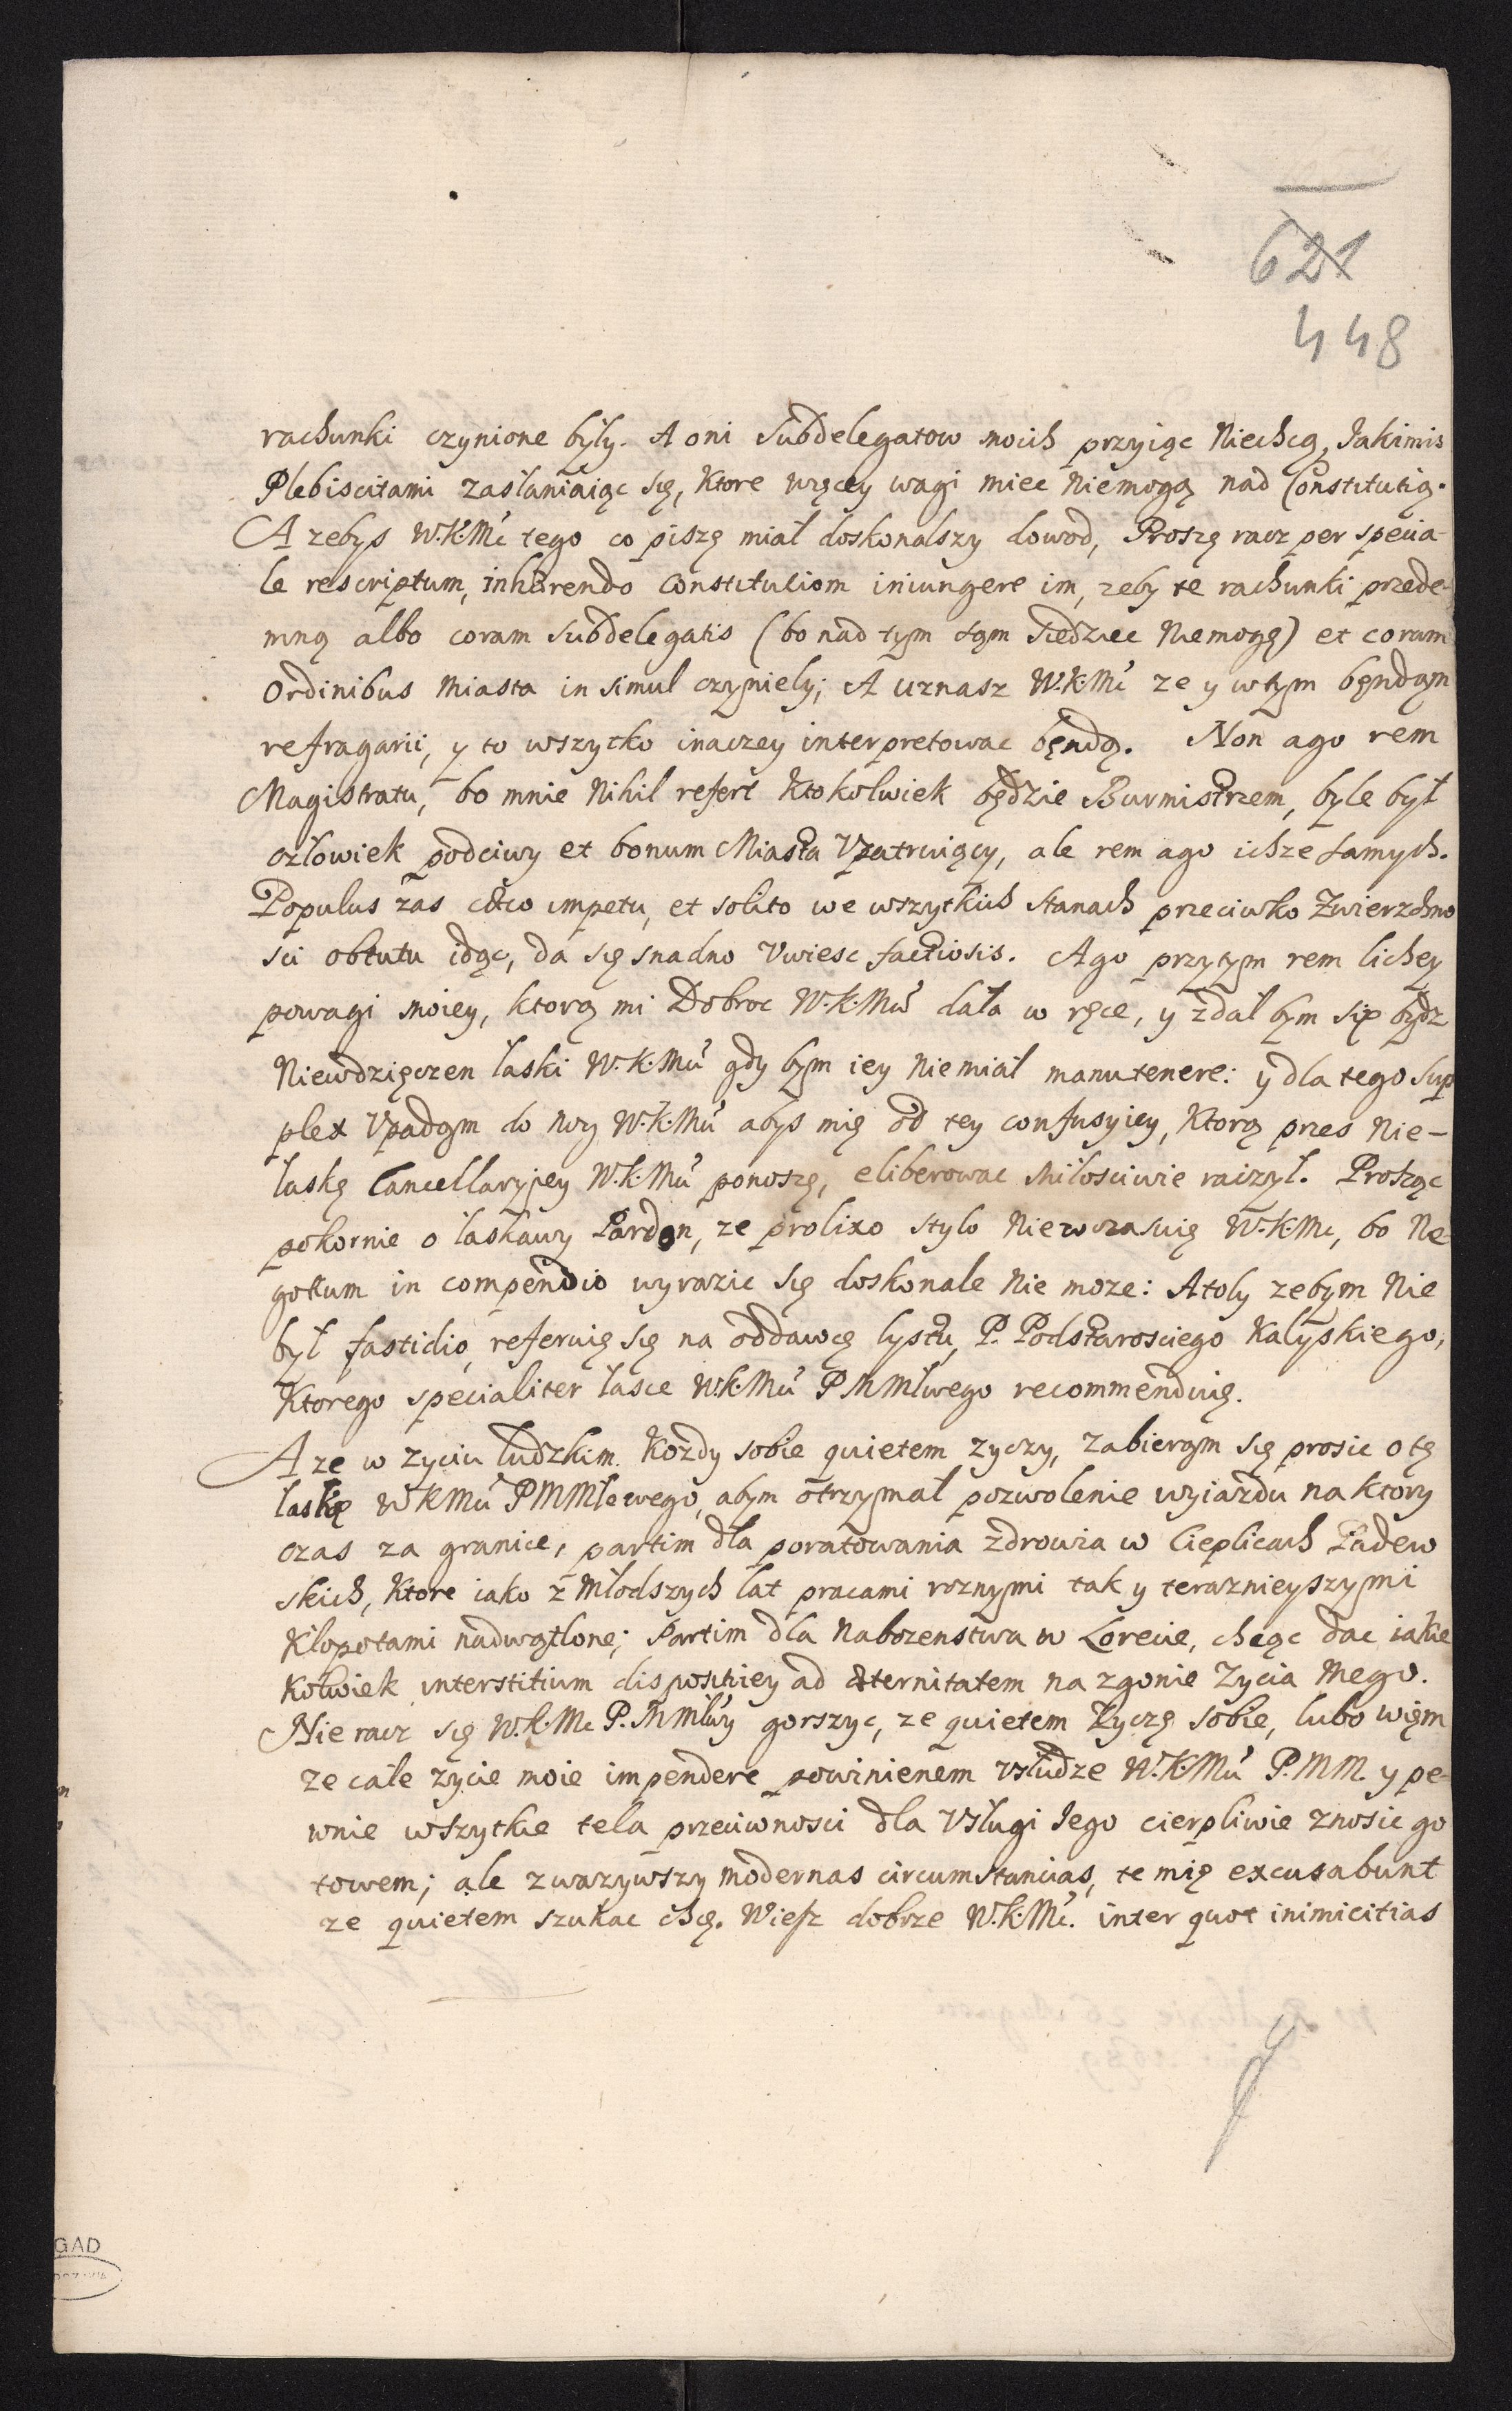 621
448
rachunki czynione były. A oni Subdelegatow moich przyiąc Niechcą, Iakimis
Plebiscitami zasłaniaiąc się, Ktore więcey wagi miec Niemogą nad Constitutią.
A zebys W.K.Mc tego co piszę miał doskonalszy dowod, Proszę racz per specia-
le rescriptum, inhærendo Constitutiom iniungere im, zeby te rachunki przede-
mną albo coram Subdelegatis (bo nad tym sąm siedziec Niemogę) et coram
Ordinibus Miasta in simul czyniely; A uznasz W.K.Mc ze y w tym będąm
refragarii, y to wszytko inaczey interpretowac bęndą. Non ago rem
Magistratu, bo mnie Nihil refert Ktokolwiek będzie Burmistrzem, byle był
człowiek podciwy et bonum Miasta Upatruiący, ale rem ago ichze samych.
Populus zas cæco impetu, et solito we wszytkich stanach przeciwko Zwierzchno
sci obtutu idąc, da się snadno Uwiesc factiosis. Ago przytym rem lichey
powagi moiey, ktorą mi Dobroc W.K.Mci dała w ręce, y zdał bym się bydz
Niewdzięczen łaski W.K.Mci gdy bym iey niemiał manutenere: y dla tego Sup
plex Upadąm do nog W.K.Mci abys mię od tey confusyiey, Ktorą przes Nie-
łaskę Cancellaryjey W.K.Mci ponoszę, eliberowac Miłosciwie raczył. Prosząc
pokornie o łaskawy Pardon, ze prolixo stylo Niewczasuię W.K.Mc, bo Ne-
gotium in compendio wyrazic się doskonale Nie moze: Atoly zebym Nie
był fastidio, referuię się na oddawcę lystu, P. Podstarosciego Kalyskiego,
Ktorego specialiter łasce W.K.Mci P M Młwego recommenduię.
A ze w zyciu ludzkim. Kozdy sobie quietem zyczy, zabierąm się prosic o tę
łaskę W K Mci P M Młewego, abym otrzymał pozwolenie wyiazdu na ktory
czas za granice, partim dla poratowania zdrowia w Cieplicach Padew
skich, Ktore iako z Młodszych lat pracami roznymi tak y teraznieyszymi
Kłopotami nadwątlone; Partim dla Nabozenstwa w Lorecie, chcąc dac iakie
kolwiek interstitium dispositiey ad æternitatem na zgonie Zycia Mego.
Nie racz się W.K.Mc P. M Miłwy gorszyc, ze quietem Zyczę sobie, lubo więm
ze całe zycie moie impendere powinienem usłudze W.K.Mci P.M M. y pe-
wnie wszytkie tela przeciwnosci dla Usługi Jego cierpliwie znosic go
towem; ale zwazywszy modernas circumstancias, te mię excusabunt
ze quietem szukac chcę. Wiesz dobrze W.K.Mc. inter quot inimicitias
GAD